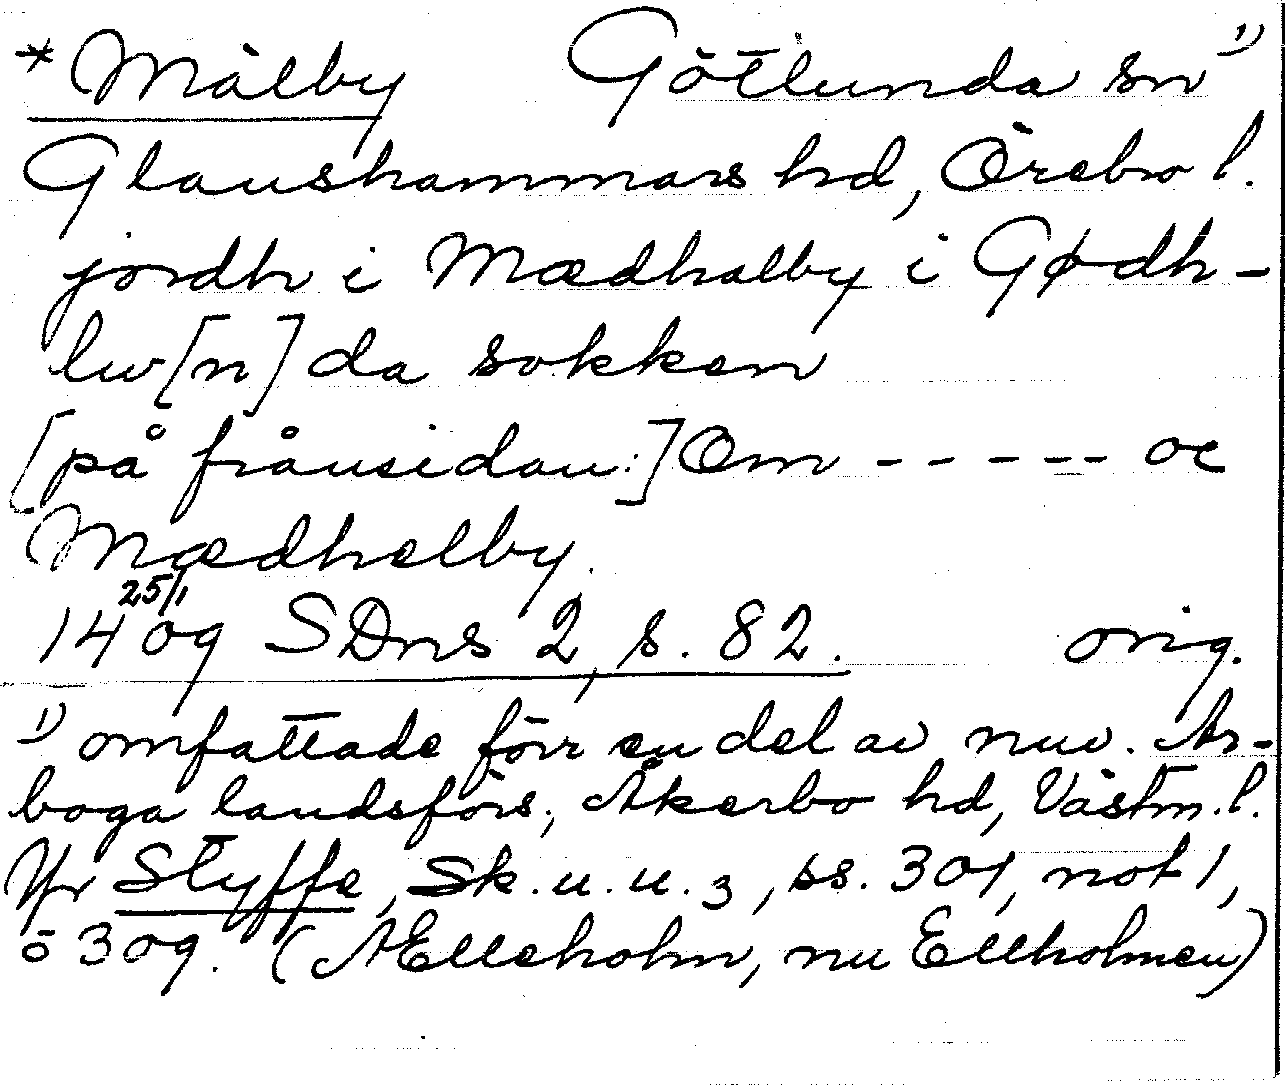 * Mälby Götlunda sn 1)
Glanshammars hd, Örebro l.
jordh i Mædhalby i Gødh-
lw[n]da sokken
[på frånsidan:] Om ----- oc
Mædhelby.
14 25/1 09 SDns 2, s. 82. orig.
1) omfattade förr en del av nuv. Ar-
boga landsförs., Åkerbo hd, Västm. l.
Jfr Styffe, Sk. u. u. 3, ss. 301, not 1,
o 309. (Ælleholm, nu Ellholmen)